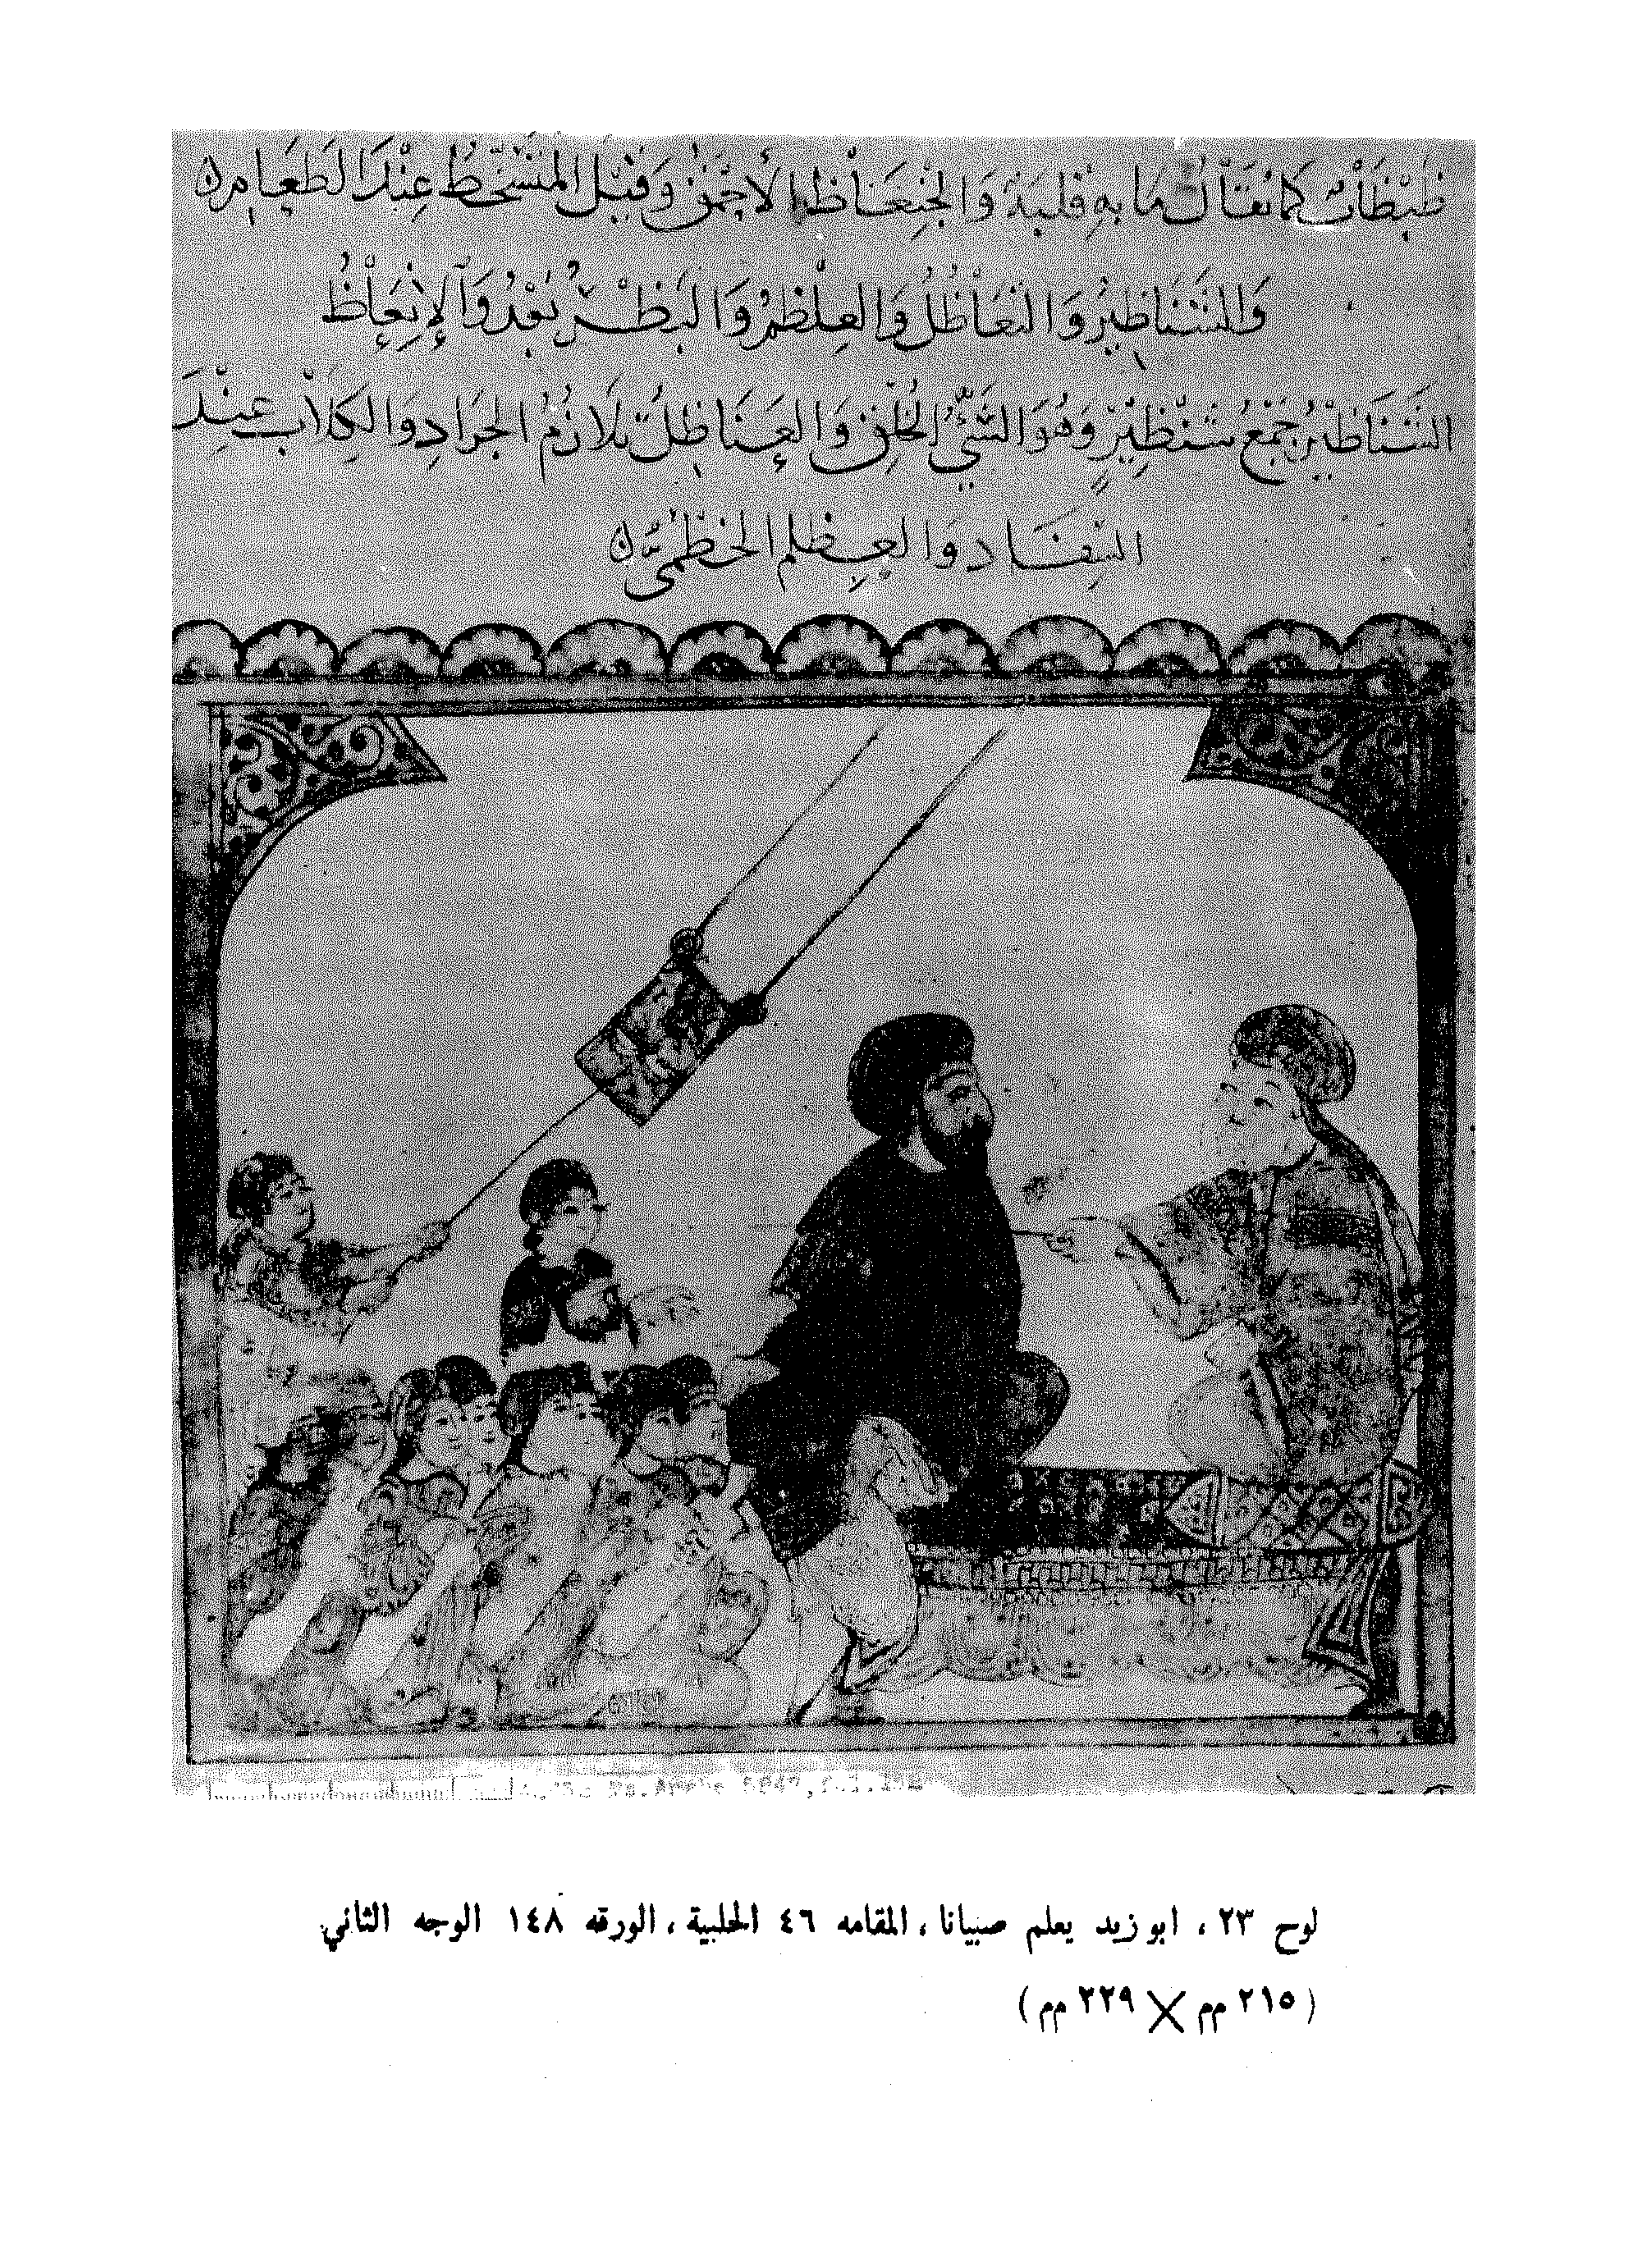 ظبظاب كما يقال ما به قلبة والجنعاظ الأحمق وقيل المتسخط عند الطعام
وَالشَّنَاظِيرُ وَالتَّعَاظُلُ وَالعِظْلِمُ وَالبَظْرُ بَعْدُ وَالإِنْعَاظُ
الشَّنَاظِيْرُ جَمْعُ شِنْظِيْرٍ وَهُوَ السَّيِّئُ الخُلُقِ وَالعَاظِلُ تَلَازُمُ الجَرَادِ وَالكِلَابِ عِنْدَ
السِّفَاد والعِظلم الخطميّ
Ms. Arabe 5847, fol. 148
لوح ٢٣ ، ابو زيد يعلم صبيانا ، المقامه ٤٦ الحلبية ، الورقه ١٤٨ الوجه الثاني
( ٢١٥ مم × ٢٣٩ مم )